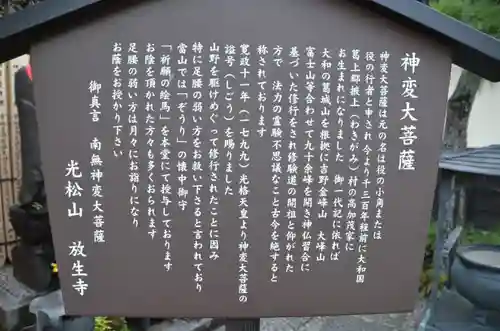 神変大菩薩
神変大菩薩は元の名は役の小角または
役の行者と申され 今より千三百年程前に大和国
葛上郡掖上（わきがみ）村の高加茂家に
お生まれになりました 御一代記に依れば
大和の葛城山を根拠に吉野金峰山 大峰山
富士山等合わせて九十余峰を開き神仏習合に
基づいた修行をされ修験道の開祖と仰がれた
方で 法力の霊験不思議なこと古今を絶すると
称されております
寛政十一年（一七九九）光格天皇より神変大菩薩の
諡号（しごう）を賜りました
山野を駆けめぐって修行されたことに因み
特に足腰の弱い方をお救い下さると言われており
当山では「ぞうり」の懐中御守
「祈願の絵馬」を本堂にて授与しております
お陰を頂かれた方々も多くおられます
足腰の弱い方は月々にお詣りになり
お蔭をお授かり下さい
御真言 南無神変大菩薩
光松山 放生寺